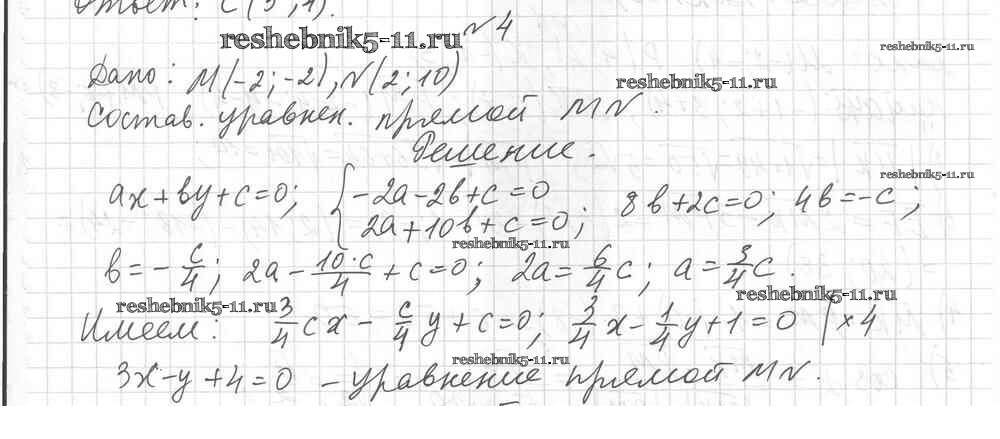 Ответ: С(5; 1).
reshebnik5-11.ru №4 reshebnik5-11.ru
Дано: M(-2; -2), N(2; 10) reshebnik5-11.ru
Состав. уравнен. прямой MN.
Решение.
reshebnik5-11.ru
ax+by+c=0; { -2a-2b+c=0
2a+10b+c=0; 8b+2c=0; 4b=-c;
reshebnik5-11.ru
b=-c/4; 2a-10·c/4+c=0; 2a=6/4c; a=3/4c.
reshebnik5-11.ru reshebnik5-11.ru
Имеем: 3/4cx-c/4y+c=0; 3/4x-1/4y+1=0 | ×4
reshebnik5-11.ru
3x-y+4=0 - уравнение прямой MN.